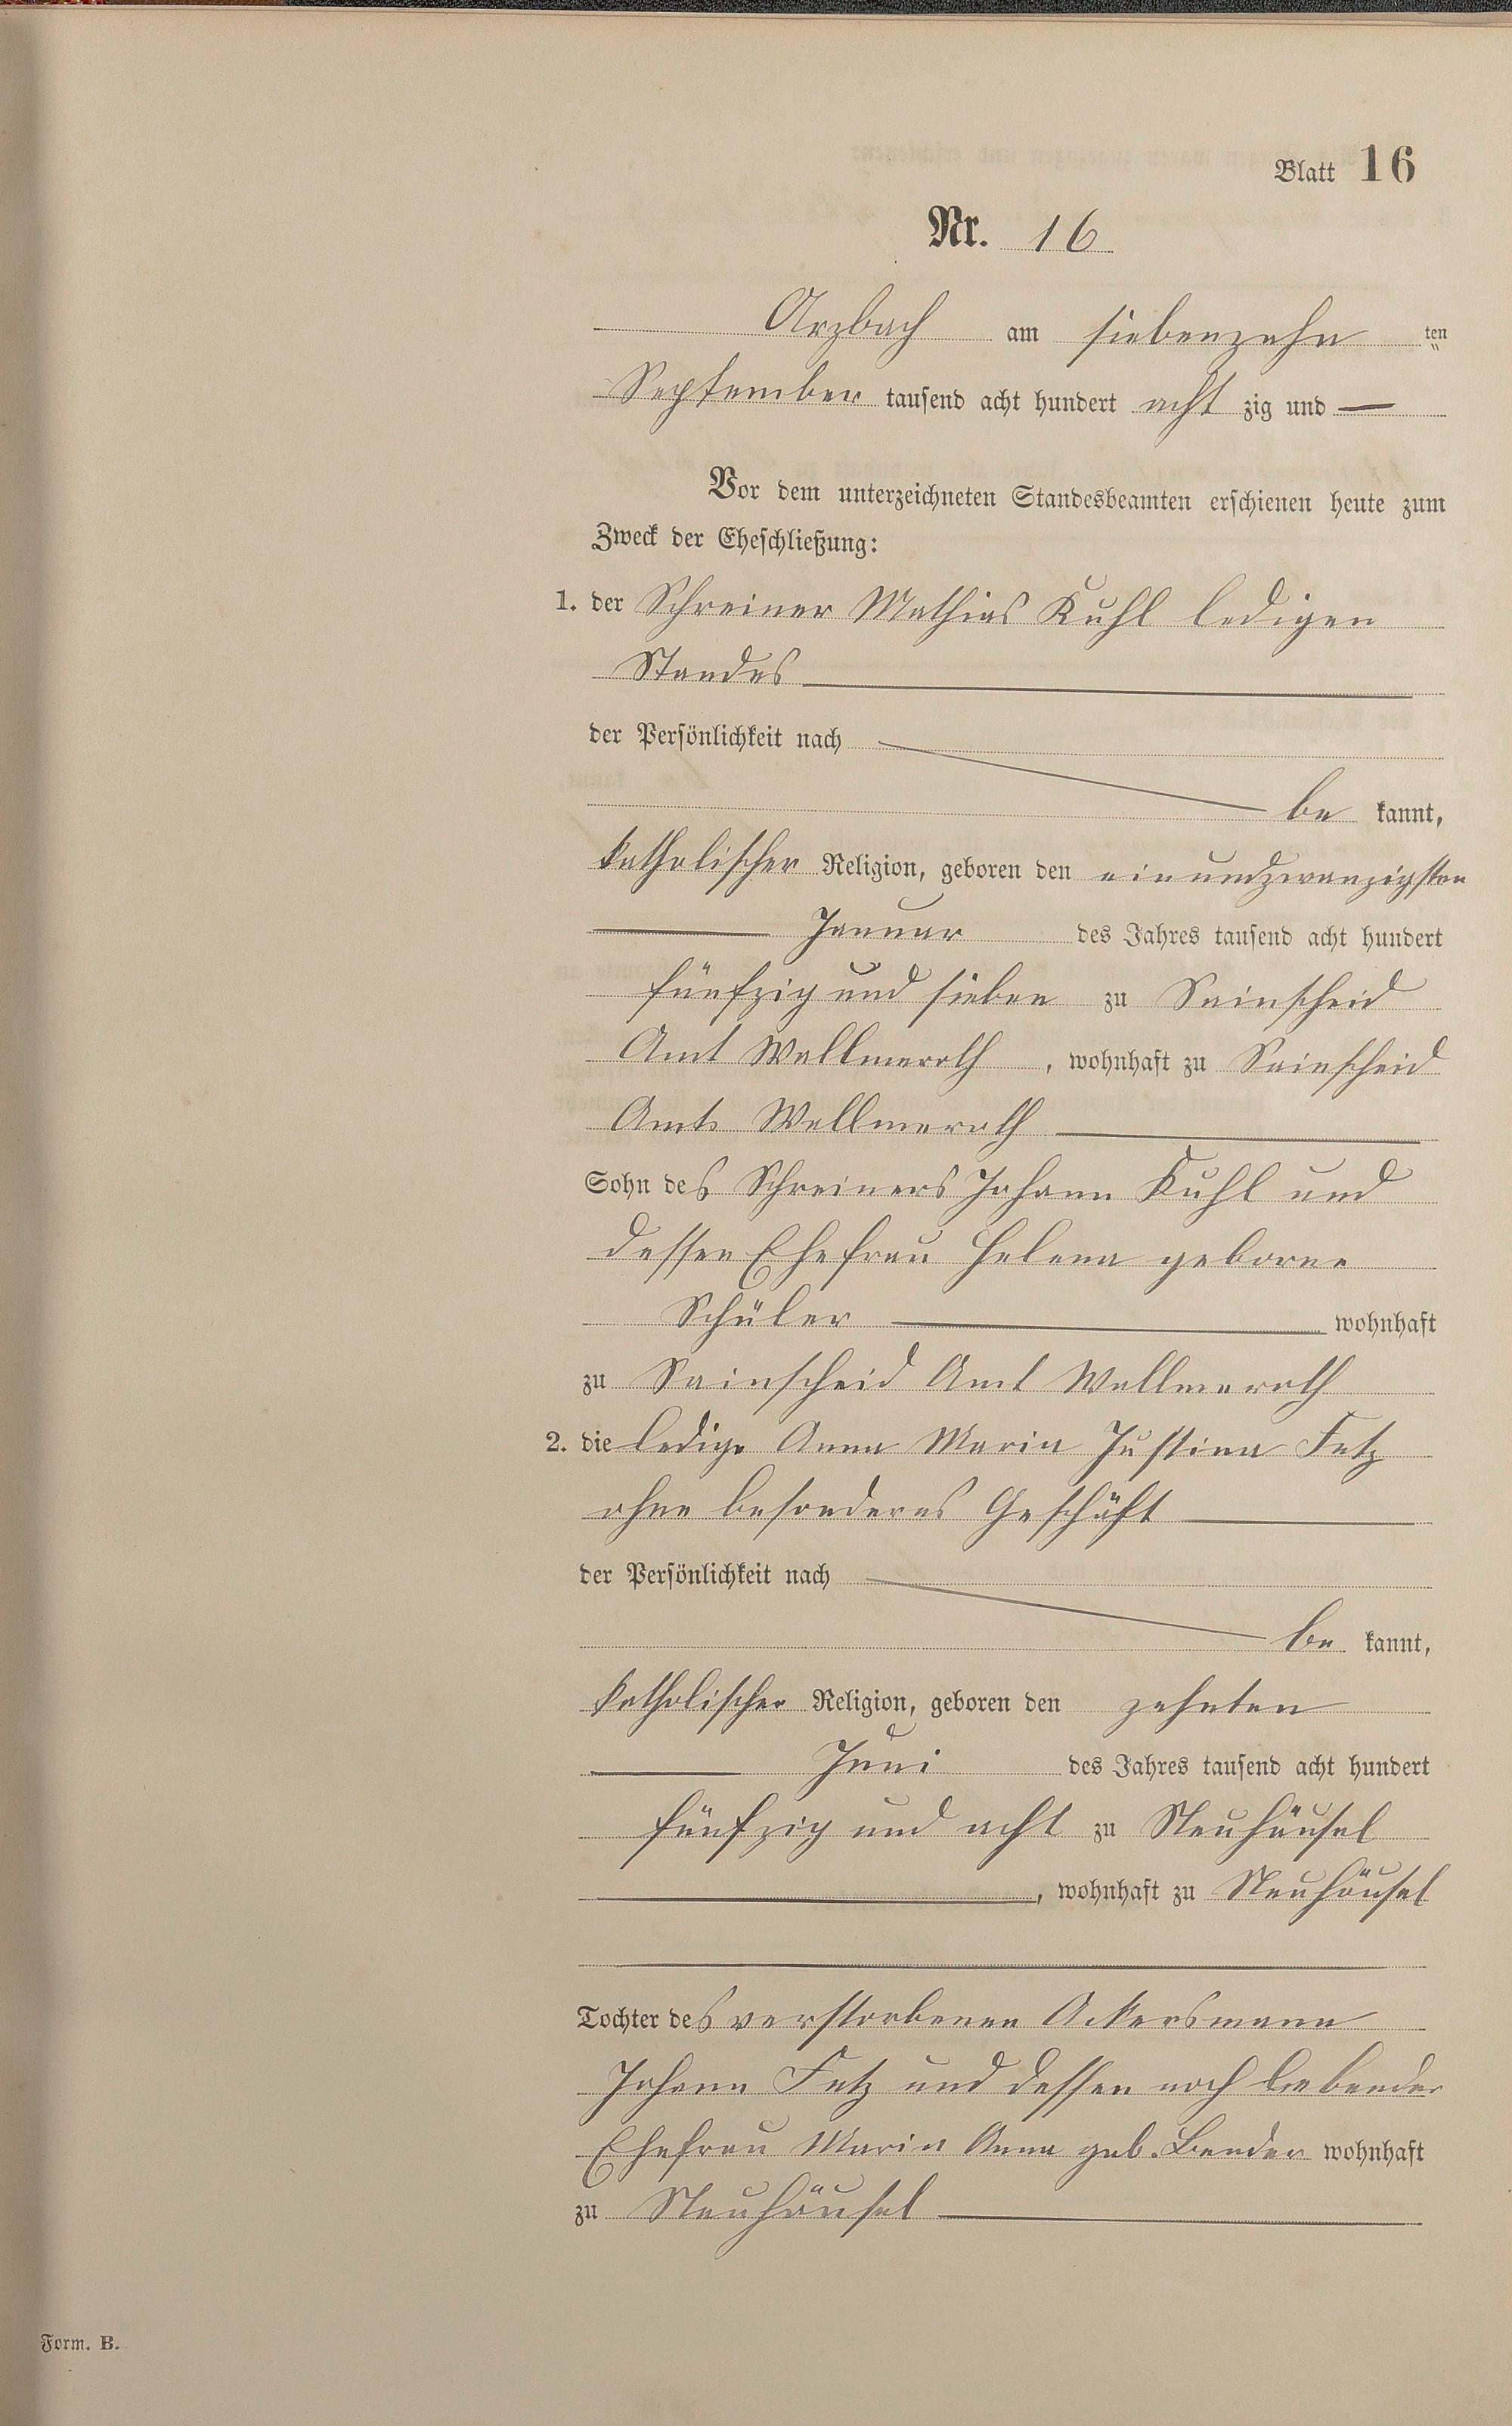 Blatt 16
Nr. 16
Arzbach am siebenzehn ten
September tausend acht hundert acht zig und —
Vor dem unterzeichneten Standesbeamten erschienen heute zum
Zweck der Eheschließung:
1. der Schreiner Mathias Kuhl ledigen
Standes
der Persönlichkeit nach
be kannt,
katholischer Religion, geboren den einundzwanzigsten
Januar des Jahres tausend acht hundert
fünfzig und sieben zu Sainscheid
Amt Wallmeroth, wohnhaft zu Sainscheid
Amts Wallmeroth
Sohn des Schreiners Johann Kuhl und
dessen Ehefrau Helena geborne
Schüler wohnhaft
zu Sainscheid Amt Wallmeroth
2. die ledige Anna Maria Justina Fetz
ohne besonderes Geschäft
der Persönlichkeit nach
be kannt,
katholischer Religion, geboren den zehnten
Juni des Jahres tausend acht hundert
fünfzig und acht zu Neuhäusel
, wohnhaft zu Neuhäusel
Tochter des verstorbenen Ackersmann
Johann Fetz und dessen noch lebender
Ehefrau Maria Anna geb. Bender wohnhaft
zu Neuhäusel
Form. B.